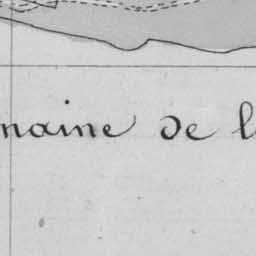 maine de l